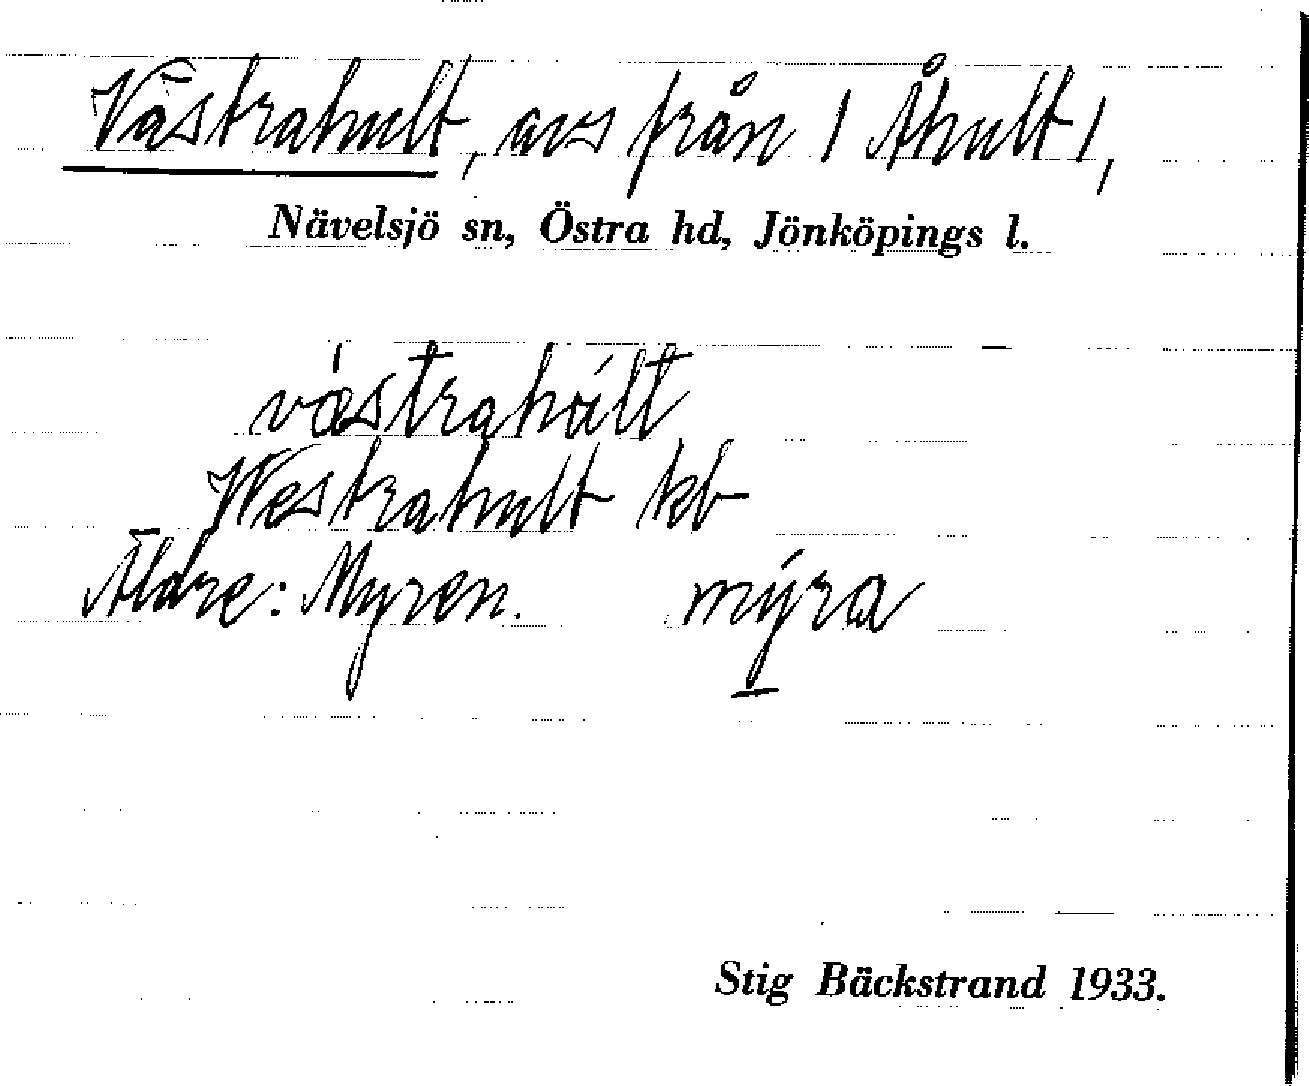 Västrahult, avs från 1 Åhult 1,
Nävelsjö sn, Östra hd, Jönköpings l.
västrahúlt
Westrahult kb
Äldre: Myren. mýra
Stig Bäckstrand 1933.